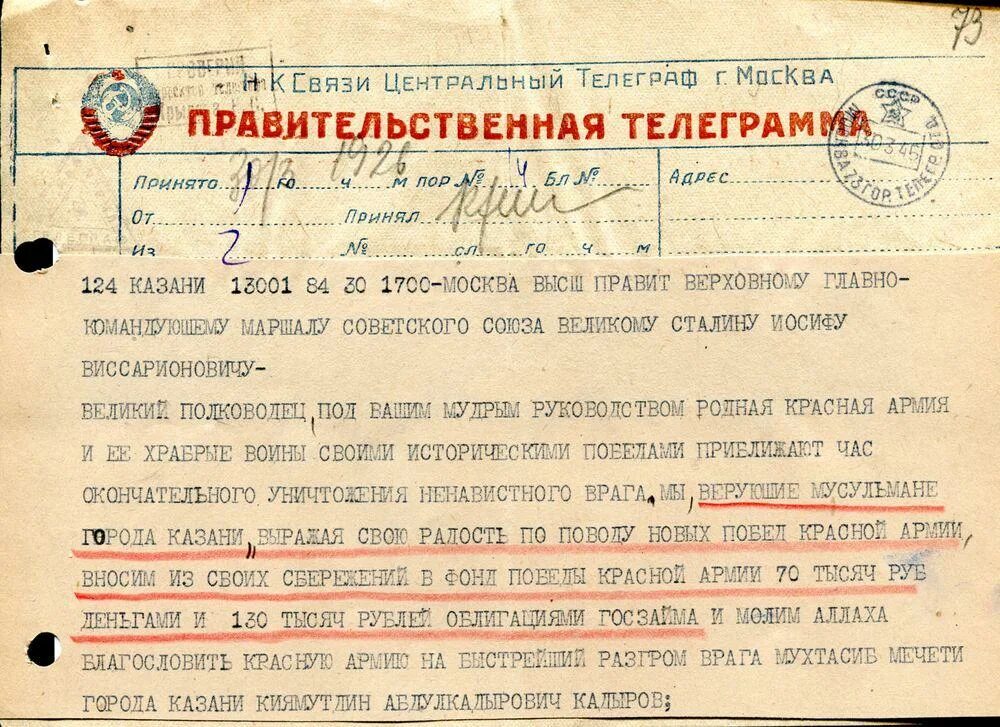 73
ПРОВЕРИЛ
Н К Связи Центральный Телеграф г. Москва
ПРАВИТЕЛЬСТВЕННАЯ ТЕЛЕГРАММА
СССР
МОСКВА
ГОР. ТЕЛЕГР.
30 3 45
Принято 30/3 го 1926 ч м пор № 4 бл № Адрес
От Принял
Из 2 № сл. го ч м
124 КАЗАНИ 13001 84 30 1700-МОСКВА ВЫСШ ПРАВИТ ВЕРХОВНОМУ ГЛАВНО-
КОМАНДУЮЩЕМУ МАРШАЛУ СОВЕТСКОГО СОЮЗА ВЕЛИКОМУ СТАЛИНУ ИОСИФУ
ВИССАРИОНОВИЧУ-
ВЕЛИКИЙ ПОЛКОВОДЕЦ, ПОД ВАШИМ МУДРЫМ РУКОВОДСТВОМ РОДНАЯ КРАСНАЯ АРМИЯ
И ЕЕ ХРАБРЫЕ ВОИНЫ СВОИМИ ИСТОРИЧЕСКИМИ ПОБЕДАМИ ПРИБЛИЖАЮТ ЧАС
ОКОНЧАТЕЛЬНОГО УНИЧТОЖЕНИЯ НЕНАВИСТНОГО ВРАГА. МЫ, ВЕРУЮЩИЕ МУСУЛЬМАНЕ
ГОРОДА КАЗАНИ, ВЫРАЖАЯ СВОЮ РАДОСТЬ ПО ПОВОДУ НОВЫХ ПОБЕД КРАСНОЙ АРМИИ,
ВНОСИМ ИЗ СВОИХ СБЕРЕЖЕНИЙ В ФОНД ПОБЕДЫ КРАСНОЙ АРМИИ 70 ТЫСЯЧ РУБ
ДЕНЬГАМИ И 130 ТЫСЯЧ РУБЛЕЙ ОБЛИГАЦИЯМИ ГОСЗАЙМА И МОЛИМ АЛЛАХА
БЛАГОСЛОВИТЬ КРАСНУЮ АРМИЮ НА БЫСТРЕЙШИЙ РАЗГРОМ ВРАГА МУХТАСИБ МЕЧЕТИ
ГОРОДА КАЗАНИ КИЯМУТДИН АБДУЛКАДЫРОВИЧ КАДЫРОВ;